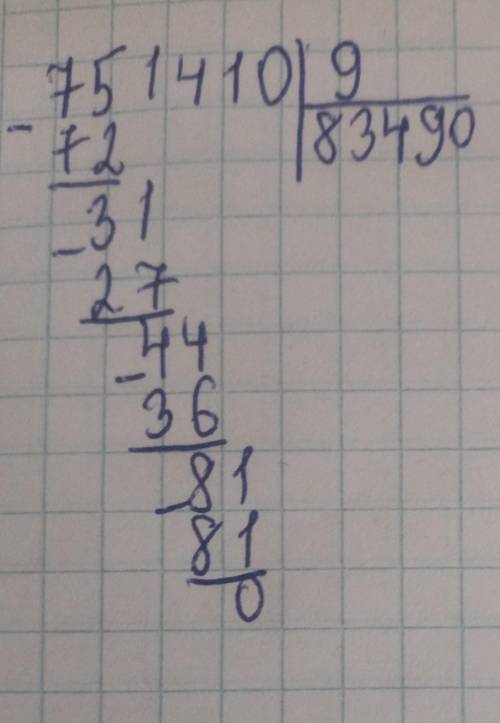 751410 9
- 72 83490
31
- 27
44
- 36
81
- 81
0